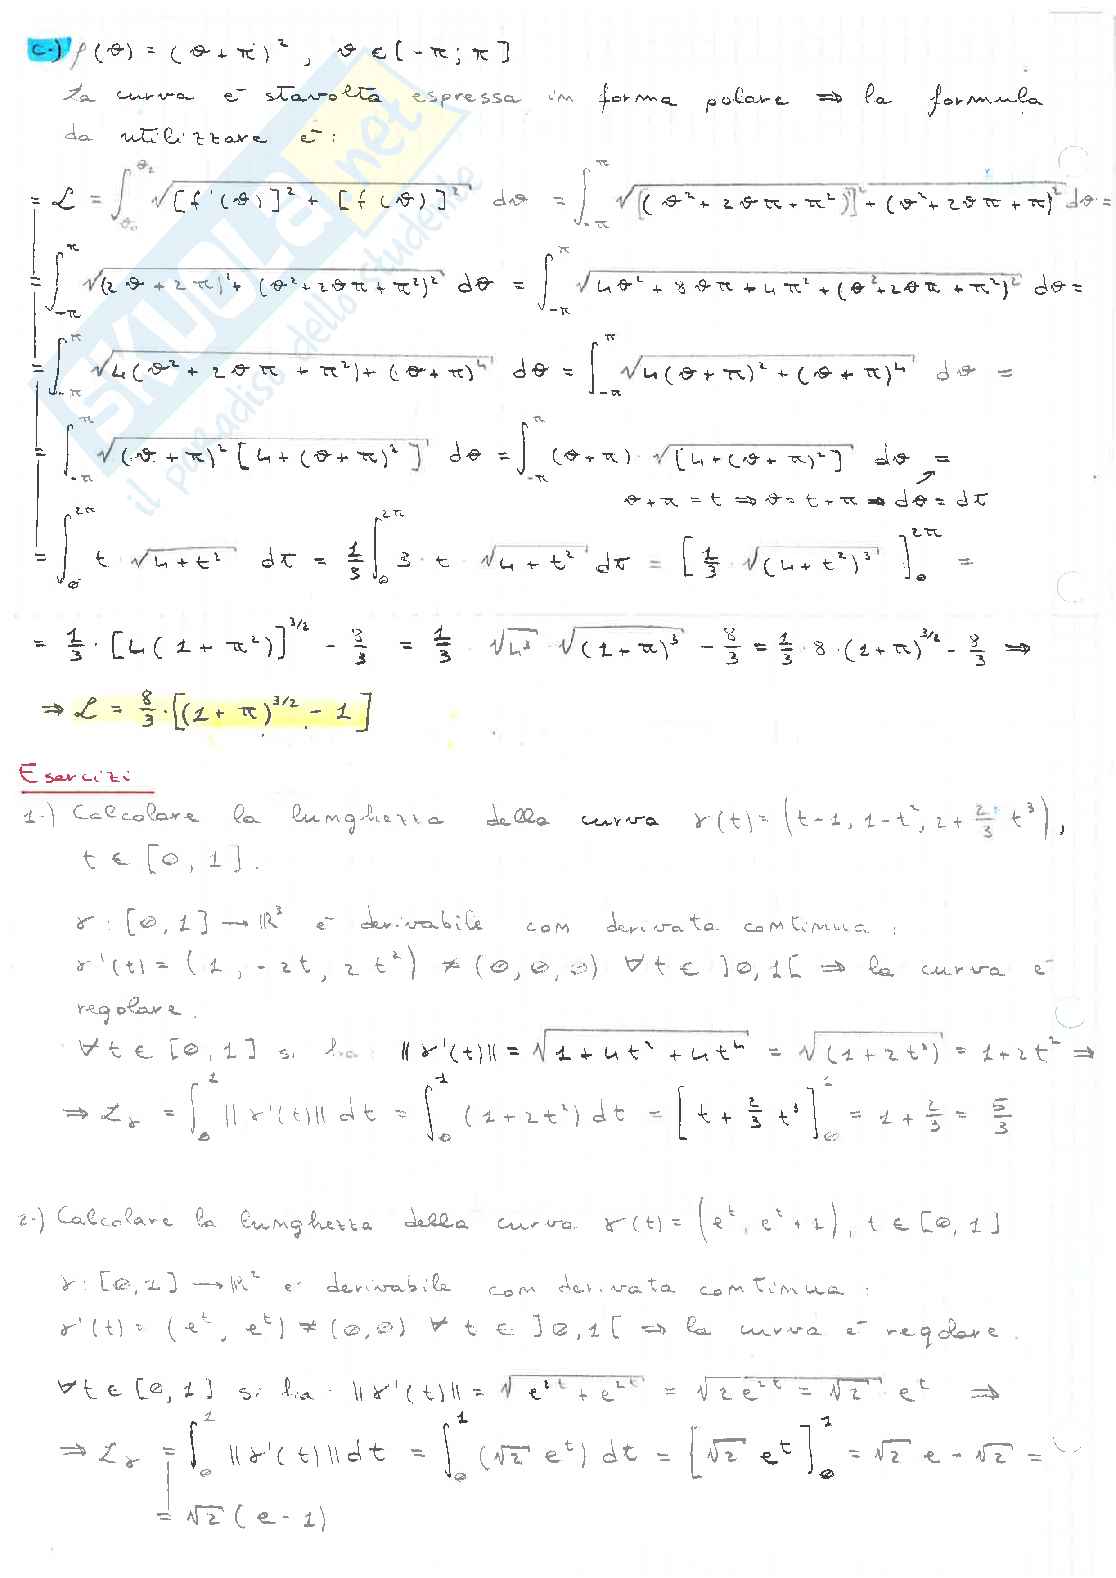 c.) ρ(θ) = (θ + π)², θ ∈ [-π; π]
La curva è stavolta espressa in forma polare ⇒ la formula
da utilizzare è:
= L = ∫_{θ₀}^{θ₂} √([f'(θ)]² + [f(θ)]²) dθ = ∫_{-π}^{π} √([(θ² + 2θπ + π²)']² + (θ² + 2θπ + π)²) dθ =
= ∫_{-π}^{π} √((2θ + 2π)² + (θ² + 2θπ + π²)²) dθ = ∫_{-π}^{π} √(4θ² + 8θπ + 4π² + (θ² + 2θπ + π²)²) dθ =
= ∫_{-π}^{π} √(4(θ² + 2θπ + π²) + (θ + π)⁴) dθ = ∫_{-π}^{π} √(4(θ + π)² + (θ + π)⁴) dθ =
= ∫_{-π}^{π} √((θ + π)² [4 + (θ + π)²]) dθ = ∫_{-π}^{π} (θ + π) · √([4 + (θ + π)²]) dθ =
θ + π = t ⇒ θ = t - π ⇒ dθ = dt
= ∫_0^{2π} t · √(4 + t²) dt = 1/3 ∫_0^{2π} 3 · t · √(4 + t²) dt = [1/3 · √((4 + t²)³)]_0^{2π} =
= 1/3 · [4(1 + π²)]^{3/2} - 8/3 = 1/3 · √4³ · √((1 + π)³) - 8/3 = 1/3 · 8 · (1 + π)^{3/2} - 8/3 ⇒
⇒ L = 8/3 · [(1 + π)^{3/2} - 1]
Esercizi
1.) Calcolare la lunghezza della curva γ(t) = (t-1, 1-t², 2 + 2/3 t³),
t ∈ [0, 1].
γ : [0, 1] → ℝ³ è derivabile con derivata continua :
γ'(t) = (1, -2t, 2t²) ≠ (0, 0, 0) ∀ t ∈ ]0, 1[ ⇒ la curva è
regolare.
∀ t ∈ [0, 1] si ha : ||γ'(t)|| = √(1 + 4t² + 4t⁴) = √(1 + 2t²)² = 1 + 2t² ⇒
⇒ L_γ = ∫_0^1 ||γ'(t)|| dt = ∫_0^1 (1 + 2t²) dt = [t + 2/3 t³]_0^1 = 1 + 2/3 = 5/3
2.) Calcolare la lunghezza della curva γ(t) = (e^t, e^t + 1), t ∈ [0, 1]
γ : [0, 1] → ℝ² è derivabile con derivata continua :
γ'(t) = (e^t, e^t) ≠ (0, 0) ∀ t ∈ ]0, 1[ ⇒ la curva è regolare.
∀ t ∈ [0, 1] si ha : ||γ'(t)|| = √(e^{2t} + e^{2t}) = √(2e^{2t}) = √2 · e^t ⇒
⇒ L_γ = ∫_0^1 ||γ'(t)|| dt = ∫_0^1 (√2 e^t) dt = [√2 e^t]_0^1 = √2 e - √2 =
= √2 (e - 1)
SKUOLA.net
il paradiso dello studente